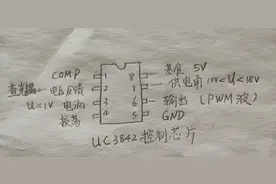 COMP 1 8 基准 5V
电压反馈 2 7 供电脚 10V<U<18V
U<1V 电流 3 6 输出 (PWM波)
振荡 4 5 GND
UC3842控制芯片